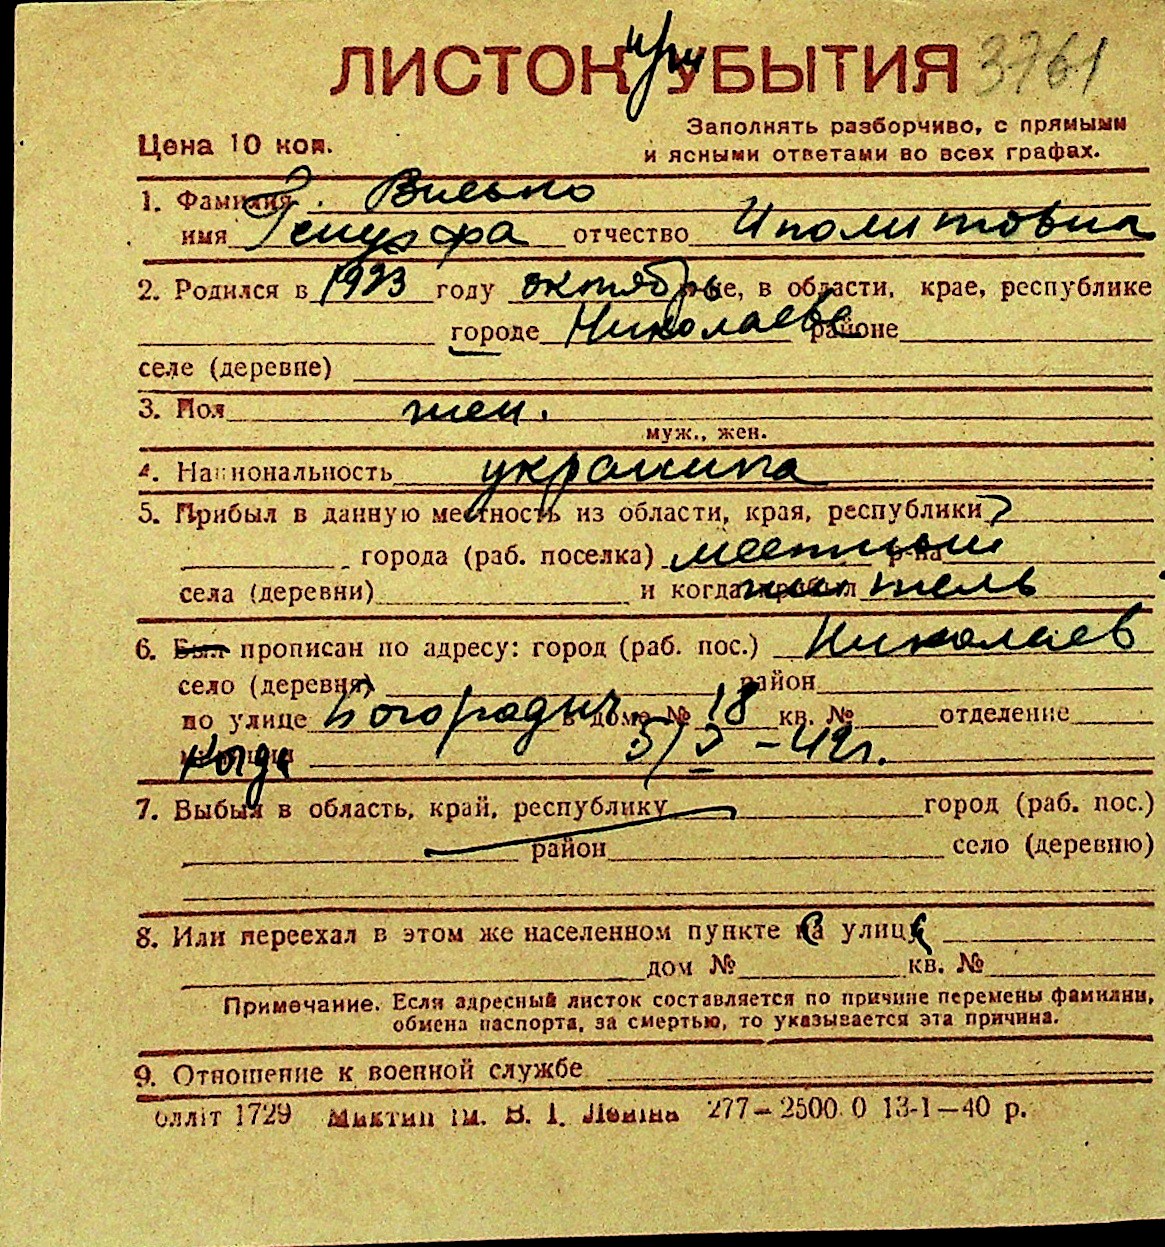 ЛИСТОК при УБЫТИЯ 3761
Цена 10 коп.
Заполнять разборчиво, с прямыми
и ясными ответами во всех графах.
1. Фамилия Вилько
имя Генуэфа отчество Иполитовна
2. Родился в 1923 году октябрь е, в области, крае, республике
городе Николаеве районе
селе (деревне)
3. Пол жен.
муж., жен.
4. Национальность украинка
5. Прибыл в данную местность из области, края, республики
города (раб. поселка) местный р-на
села (деревни) и когда прибыл житель
6. Был прописан по адресу: город (раб. пос.) Николаев
село (деревня) район
по улице Богородич. в доме № 18 кв. № отделение
когда 5/X-42г.
7. Выбыл в область, край, республику город (раб. пос.)
район село (деревню)
8. Или переехал в этом же населенном пункте на улицу
дом № кв. №
Примечание. Если адресный листок составляется по причине перемены фамилии,
обмена паспорта, за смертью, то указывается эта причина.
9. Отношение к военной службе
олліт 1729 ім. В. І. Леніна 277—2500.0 13-1—40 р.